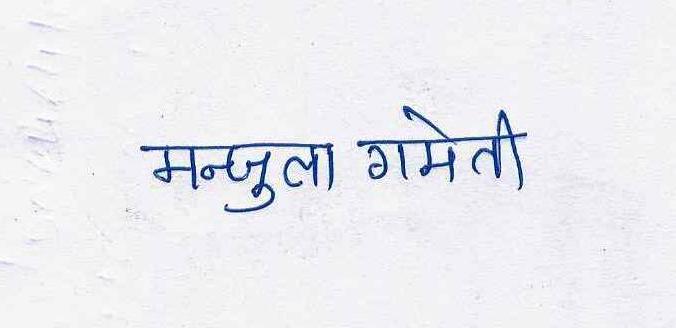 मन्जुला गमेती